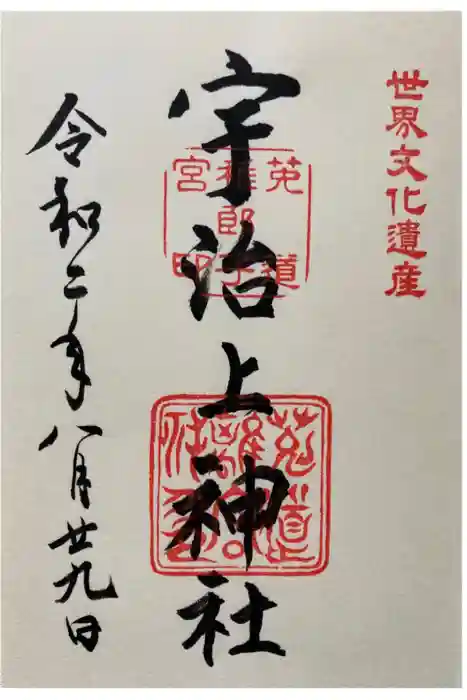 世界文化遺産
宇治上神社
莵道
稚郎子
宮印
令和二年八月廿九日